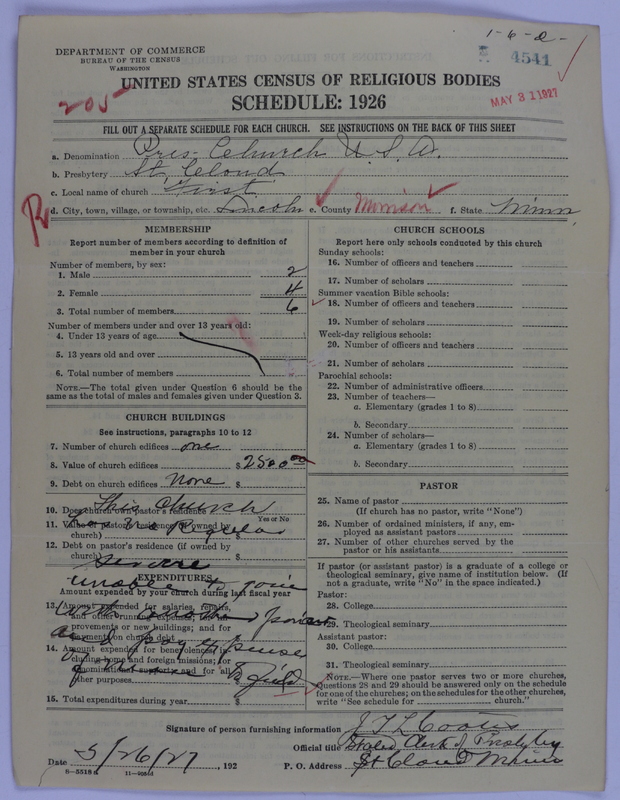 1-6-2-
4541
MAY 31 1927
DEPARTMENT OF COMMERCE
BUREAU OF THE CENSUS
WASHINGTON
205
UNITED STATES CENSUS OF RELIGIOUS BODIES
SCHEDULE: 1926
FILL OUT A SEPARATE SCHEDULE FOR EACH CHURCH. SEE INSTRUCTIONS ON THE BACK OF THIS SHEET
a. Denomination Pres. Church U.S.A.
b. Presbytery St. Cloud
c. Local name of church First
R
d. City, town, village, or township, etc. Lincoln e. County Morrison f. State Minn.
MEMBERSHIP
Report number of members according to definition of
member in your church
Number of members, by sex:
1. Male 2
2. Female 4
3. Total number of members 6
Number of members under and over 13 years old:
4. Under 13 years of age
5. 13 years old and over
6. Total number of members
NOTE.—The total given under Question 6 should be the
same as the total of males and females given under Question 3.
CHURCH BUILDINGS
See instructions, paragraphs 10 to 12
7. Number of church edifices one
8. Value of church edifices $2500.00
9. Debt on church edifices None $
This Church
10. Does church own pastor's residence
Yes or No
has no Regular
11. Value of pastor's residence (if owned by
church) $
12. Debt on pastor's residence (if owned by
church) $
service
unable to join
EXPENDITURES
Amount expended by your church during last fiscal year
with
13. Amount expended for salaries, repairs,
and other running expenses; for im-
provements or new buildings; and for
payments on church debt
and pay expense
14. Amount expended for benevolences, in-
cluding home and foreign missions;
denominational support; and for all
other purposes $
of
Field
15. Total expenditures during year
CHURCH SCHOOLS
Report here only schools conducted by this church
Sunday schools:
16. Number of officers and teachers
17. Number of scholars
Summer vacation Bible schools:
18. Number of officers and teachers
19. Number of scholars
Week-day religious schools:
20. Number of officers and teachers
21. Number of scholars
Parochial schools:
22. Number of administrative officers
23. Number of teachers—
a. Elementary (grades 1 to 8)
b. Secondary
24. Number of scholars—
a. Elementary (grades 1 to 8)
b. Secondary
PASTOR
25. Name of pastor
(If church has no pastor, write "None")
26. Number of ordained ministers, if any, em-
ployed as assistant pastors
27. Number of other churches served by the
pastor or his assistants
If pastor (or assistant pastor) is a graduate of a college or
theological seminary, give name of institution below. (If
not a graduate, write "No" in the space indicated.)
Pastor:
28. College
29. Theological seminary
Assistant pastor:
30. College
31. Theological seminary
NOTE.—Where one pastor serves two or more churches,
Questions 28 and 29 should be answered only on the schedule
for one of the churches; on the schedules for the other churches,
write "See schedule for church."
Signature of person furnishing information J T L Coates
Official title Stated Clerk of Presbytery
Date 5/26/27, 192 P. O. Address St Cloud Minn
8-5518a 11-9084d